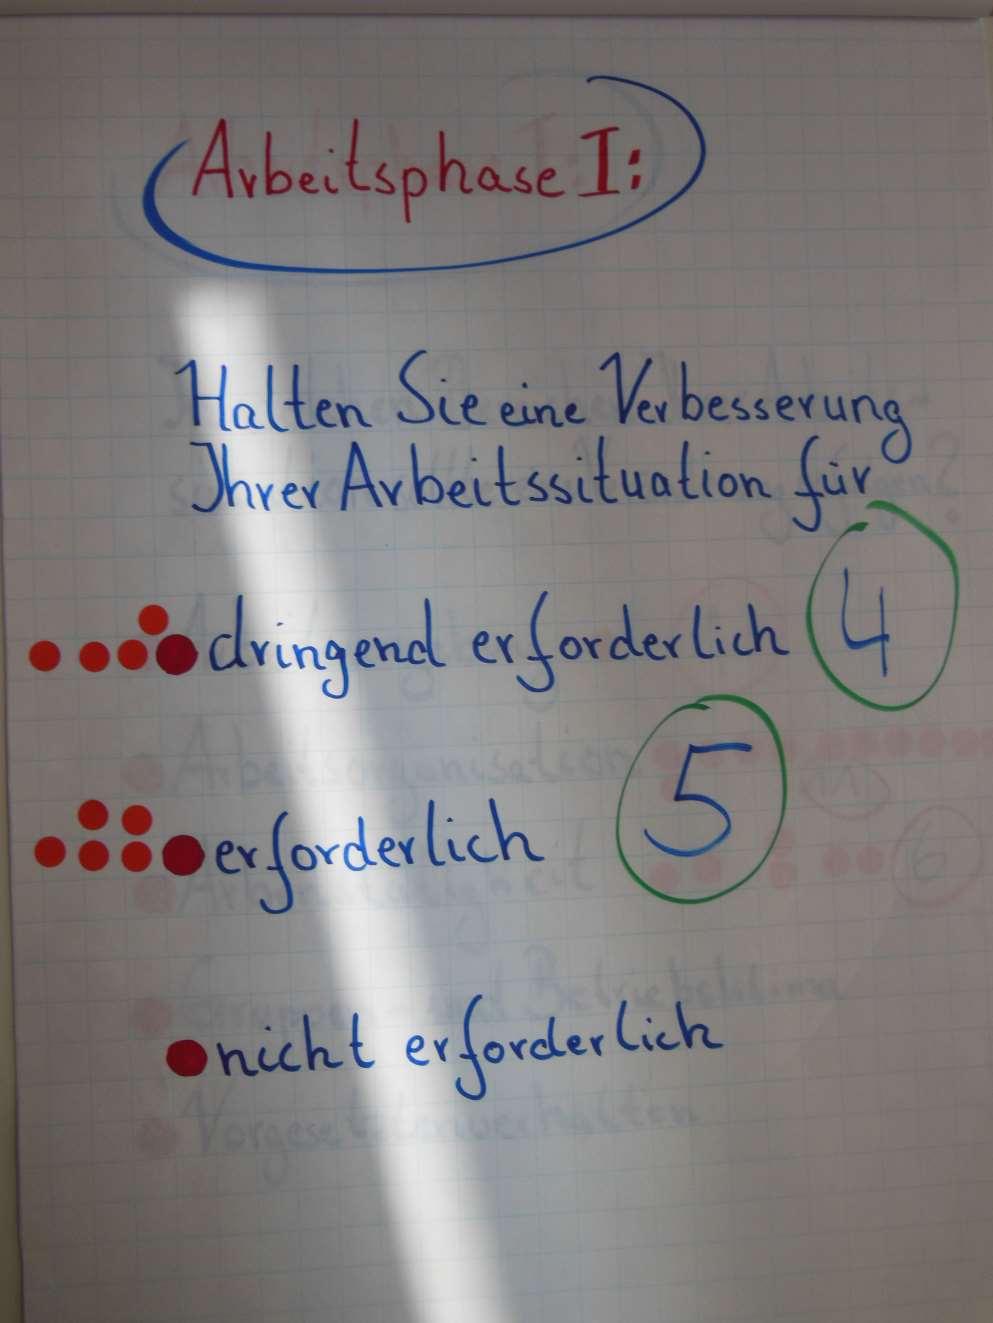 Arbeitsphase I:
Halten Sie eine Verbesserung
Ihrer Arbeitssituation für
dringend erforderlich 4
erforderlich 5
nicht erforderlich